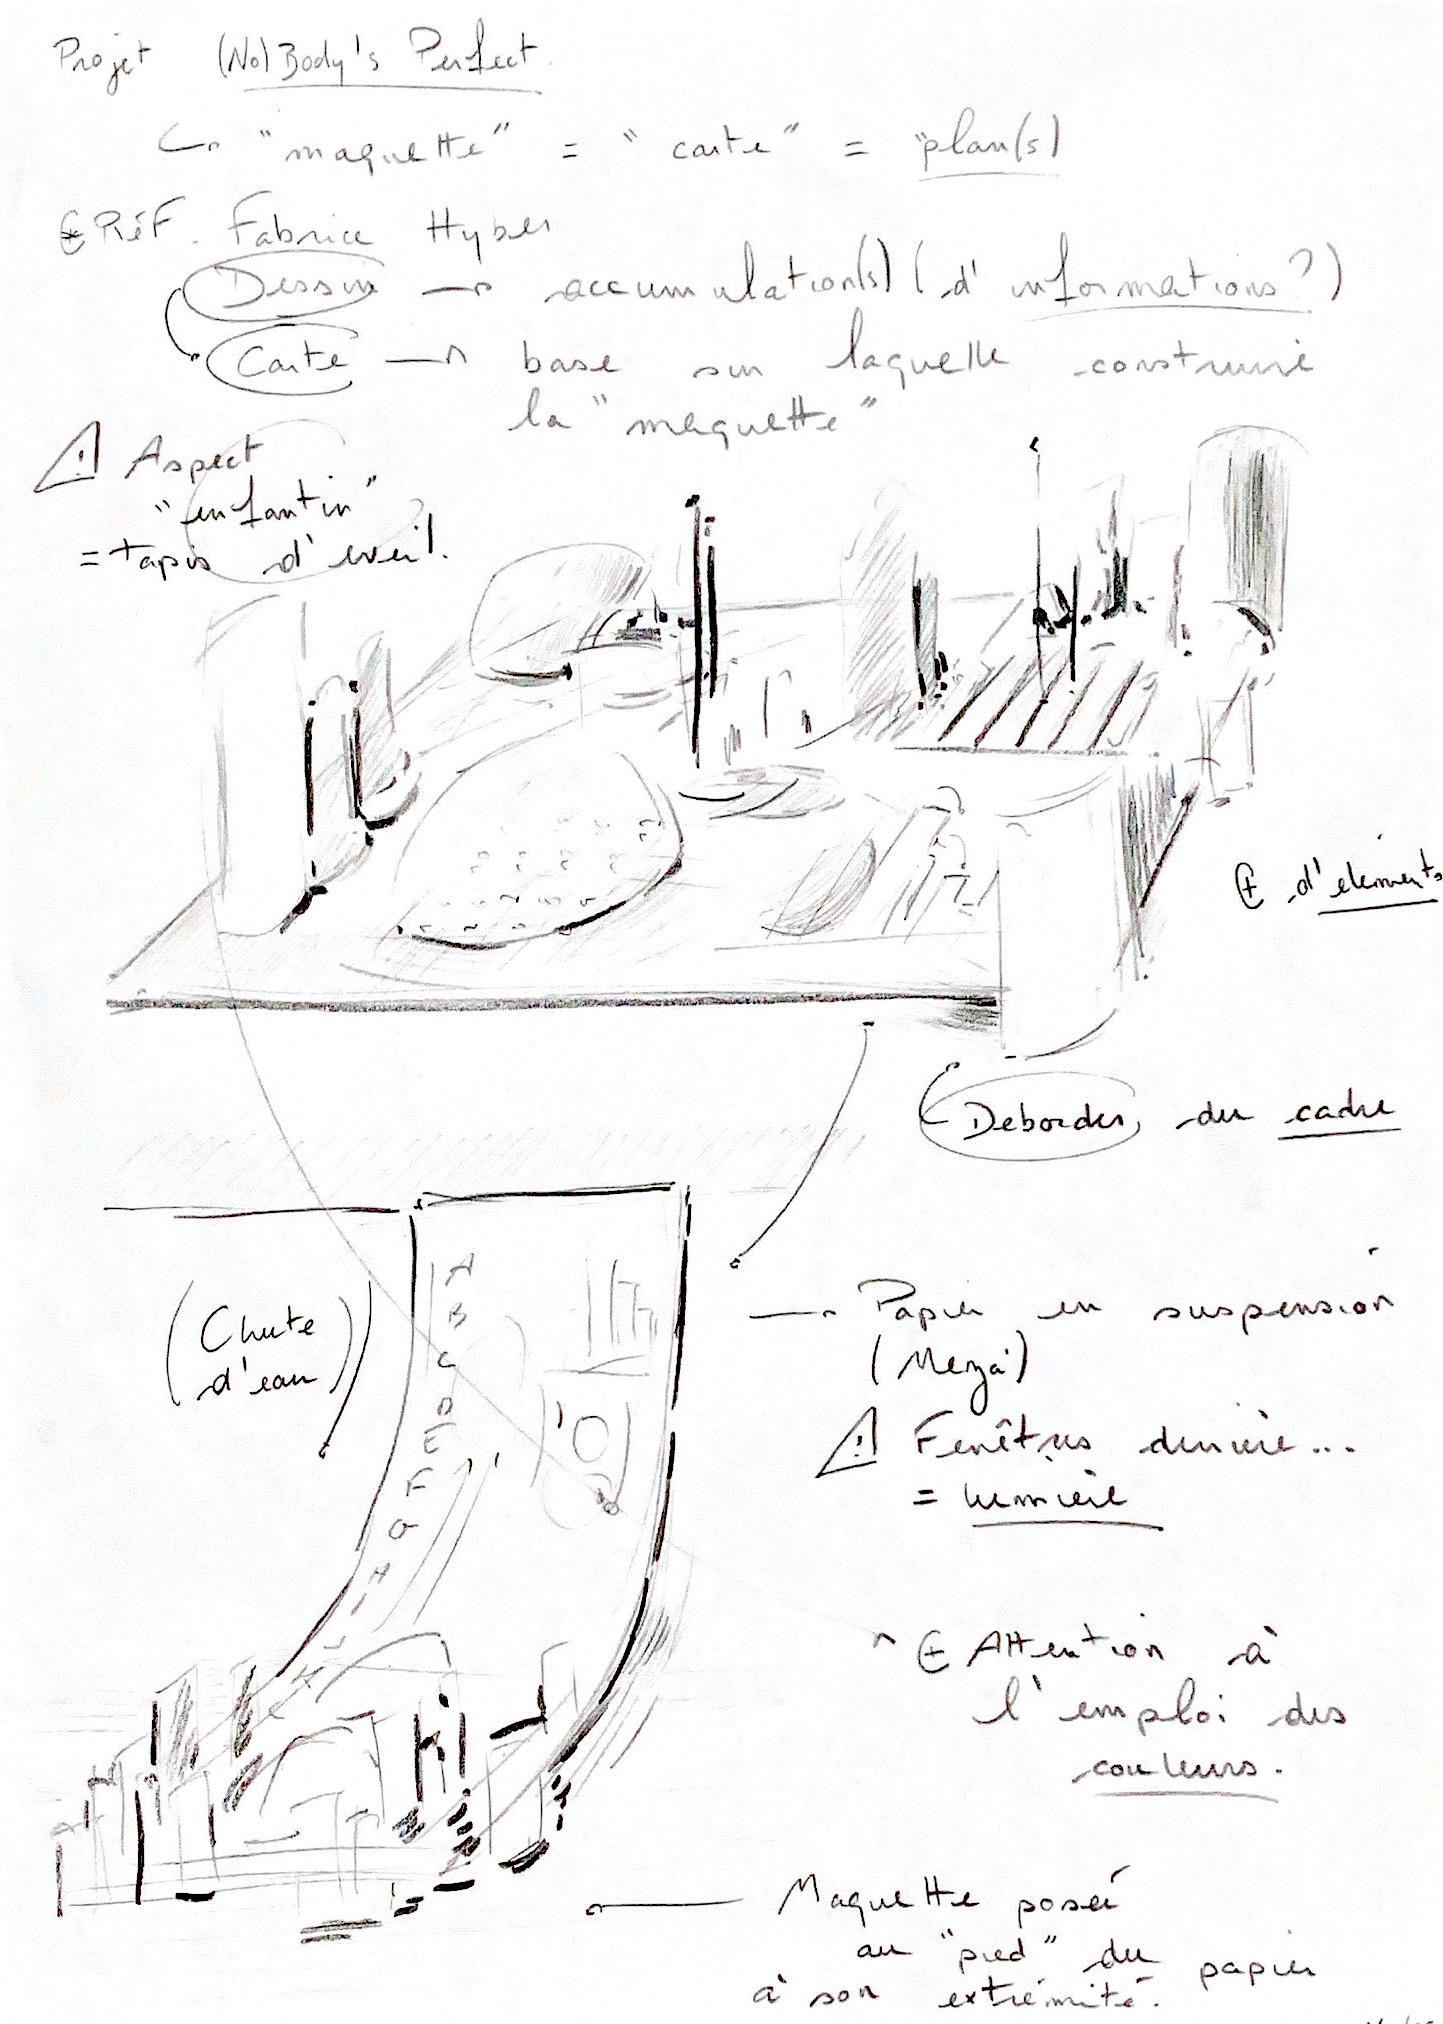 Projet (No)Body's Perfect.
"maquette" = "carte" = "plan(s)
⊕ RéF. Fabrice Hyber
Dessin → accumulation(s) (d'informations?)
Carte → base sur laquelle construire
la "maquette"
⚠ Aspect
"enfantin"
= tapis d'éveil.
⊕ d'éléments
Déborder du cadre
(Chute
d'eau)
A
B
C
D
E
F
G
H
I
J
K
→ Papier en suspension
(Mezza)
⚠ Fenêtres derrière...
= lumière
⊕ Attention à
l'emploi des
couleurs.
Maquette posée
au "pied" du papier
à son extrémité.